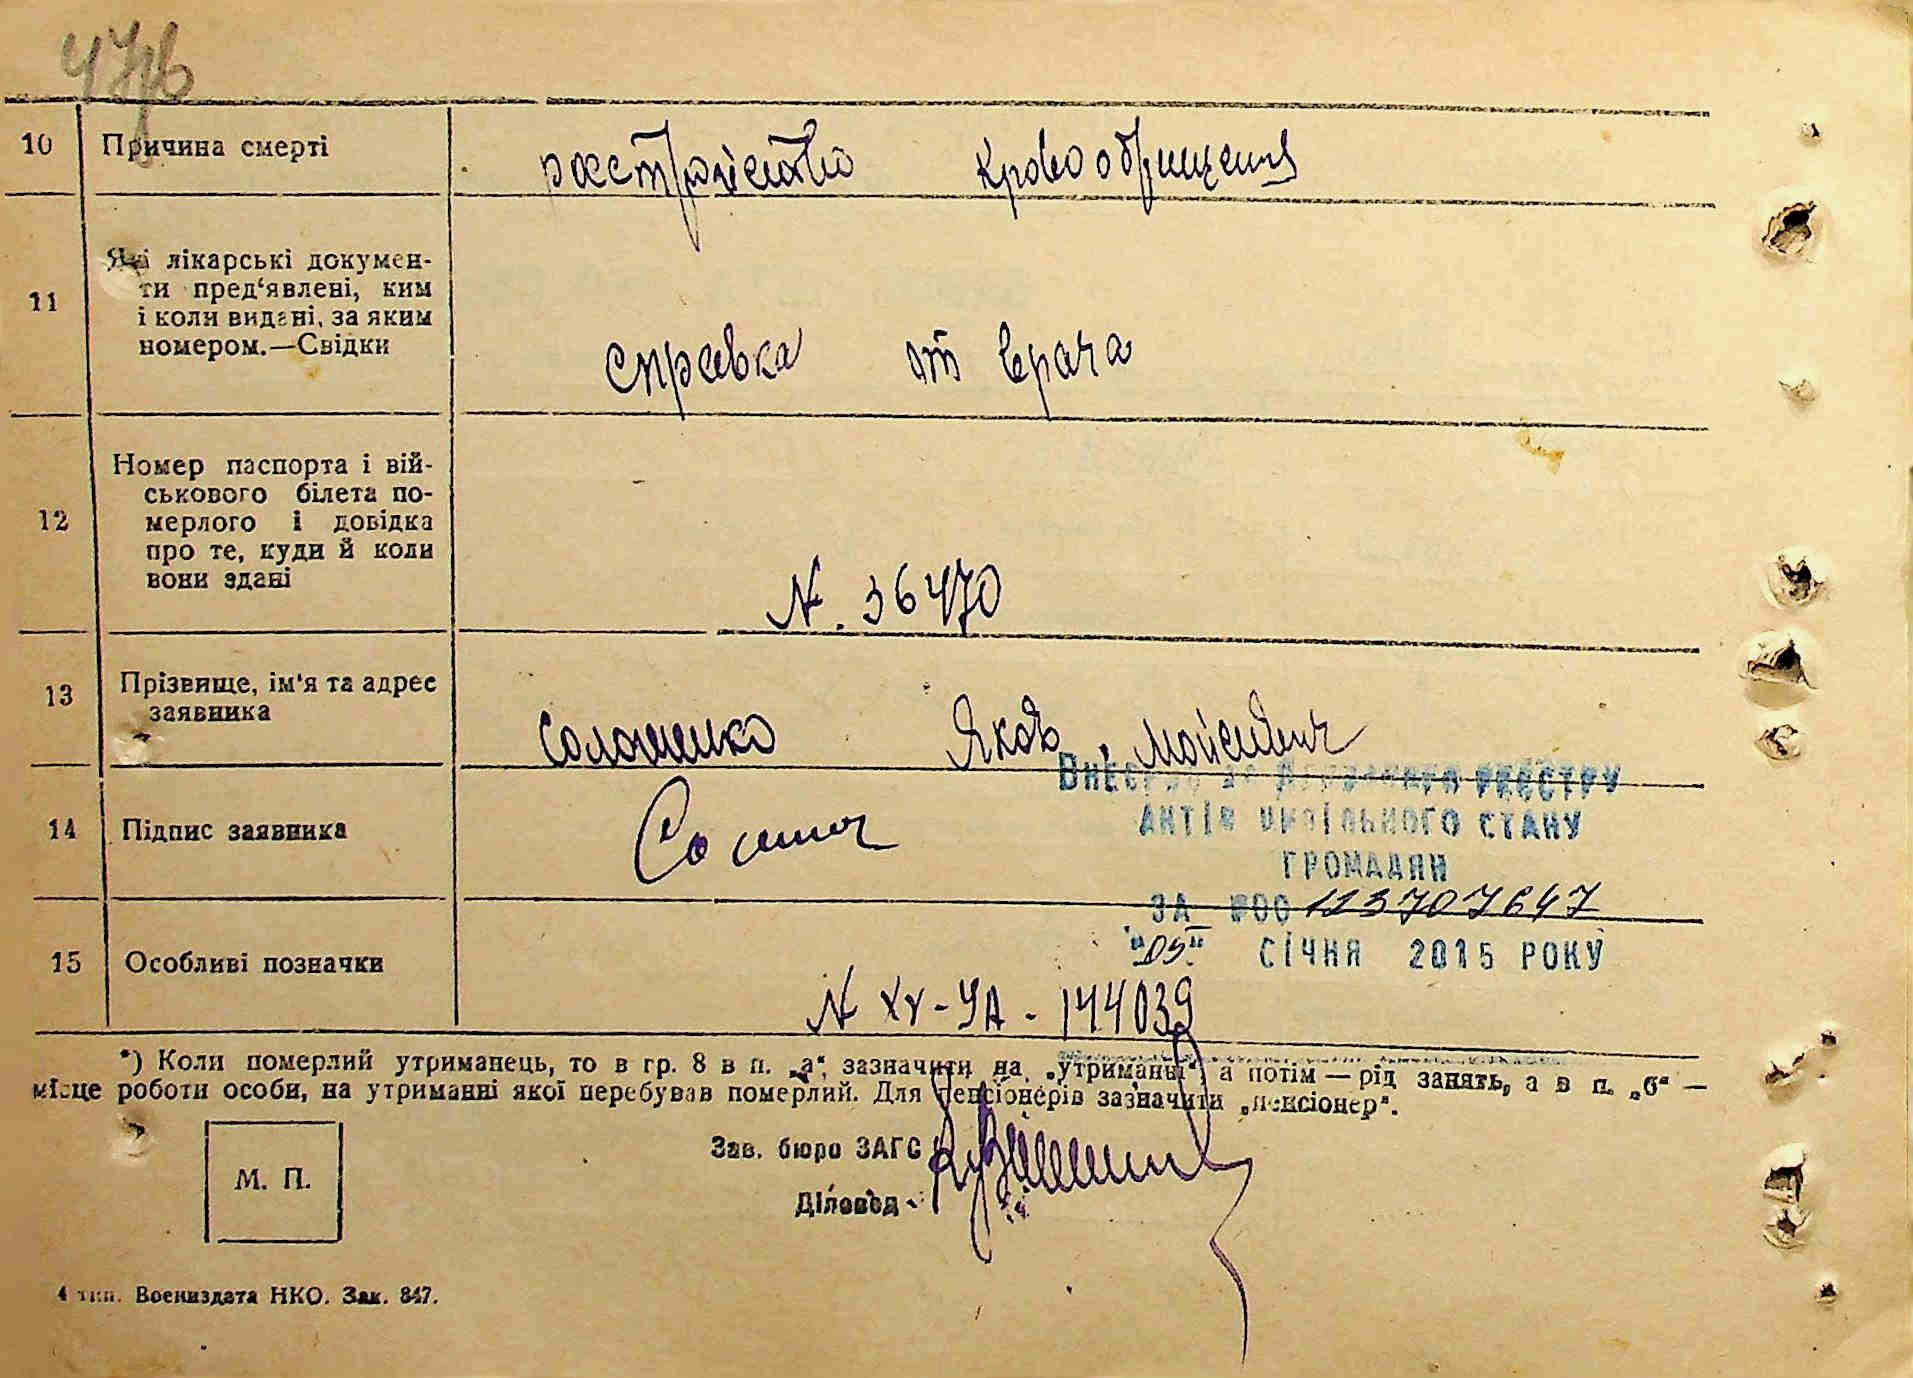 10 Причина смерті расстройство кровообращения
11 Які лікарські докумен-
ти пред‘явлені, ким
і коли видані, за яким
номером.—Свідки
справка от врача
12 Номер паспорта і вій-
ськового білета по-
мерлого і довідка
про те, куди й коли
вони здані
N. 36470
13 Прізвище, ім'я та адрес
заявника
Соломенко Яков Мойсеевич
Внесено до Державного реєстру
актів цивільного стану
громадян
14 Підпис заявника
за №00 123707647
"05" січня 2015 року
15 Особливі позначки
N XV-УА - 144039
*) Коли померлий утриманець, то в гр. 8 в п. „а“ зазначити на „утриманні“, а потім — рід занять, а в п. „б“ —
місце роботи особи, на утриманні якої перебував померлий. Для пенсіонерів зазначити „пенсіонер“.
М. П.
Зав. бюро ЗАГС
Діловод
4 тип. Воениздата НКО. Зак. 847.